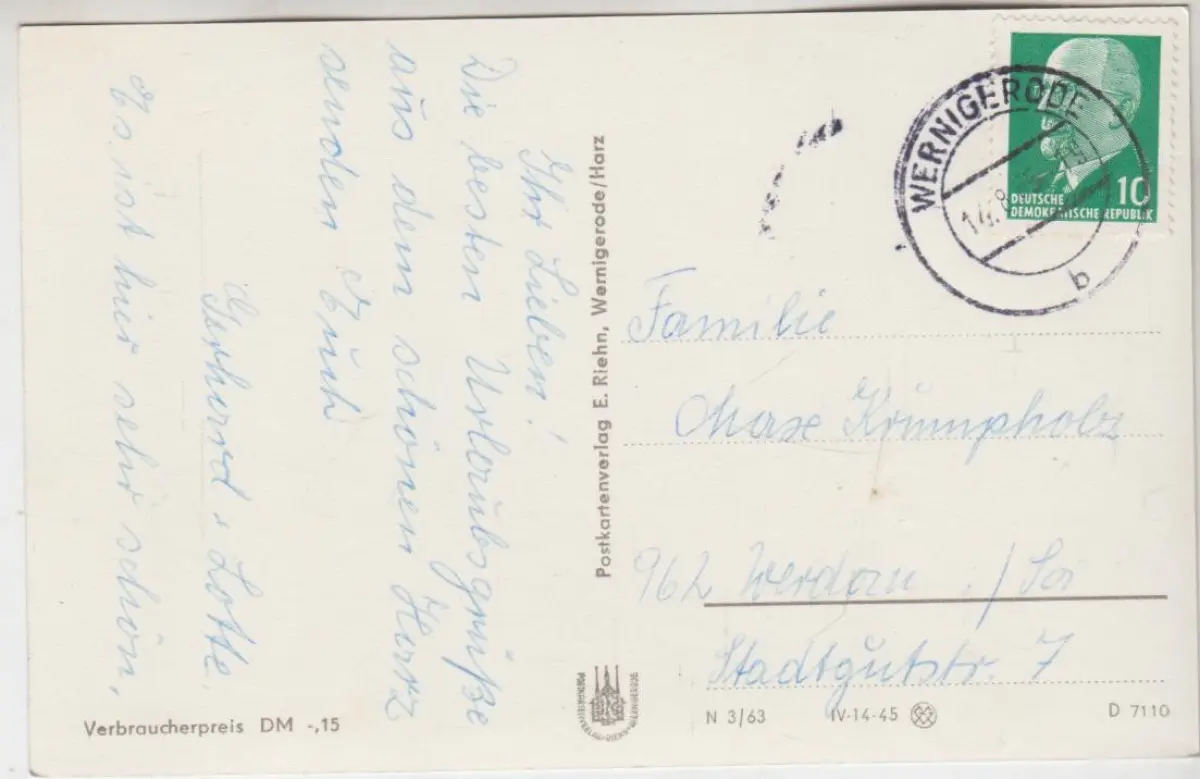 Ihr Lieben!
Die besten Urlaubsgrüße
aus dem schönen Harz
senden Euch
Gerhard u. Lotte.
Es ist hier sehr schön,
Verbraucherpreis DM -,15
Postkartenverlag E. Riehn, Wernigerode/Harz
WERNIGERODE
b
10
DEUTSCHE
DEMOKRATISCHE REPUBLIK
Familie
Max Krumpholz
962 Werdau ./Sa
Stadtgutstr. 7
N 3/63 IV-14-45 D 7110